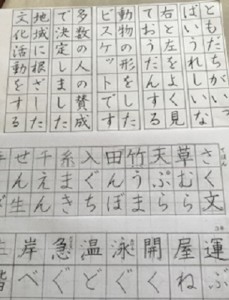 ともだちがいっ
ぱいうれしいな
右と左をよく見
ておうだんする
動物の形をした
ビスケットです
多数の人の賛成
で決定しました
地域に根ざした
文化活動をする
さく文
草むら
天ぷら
竹うま
田んぼ
入ぐち
糸まき
千えん
せん生
運ぶ
屋ね
開く
泳ぐ
温ど
急ぐ
岸べ